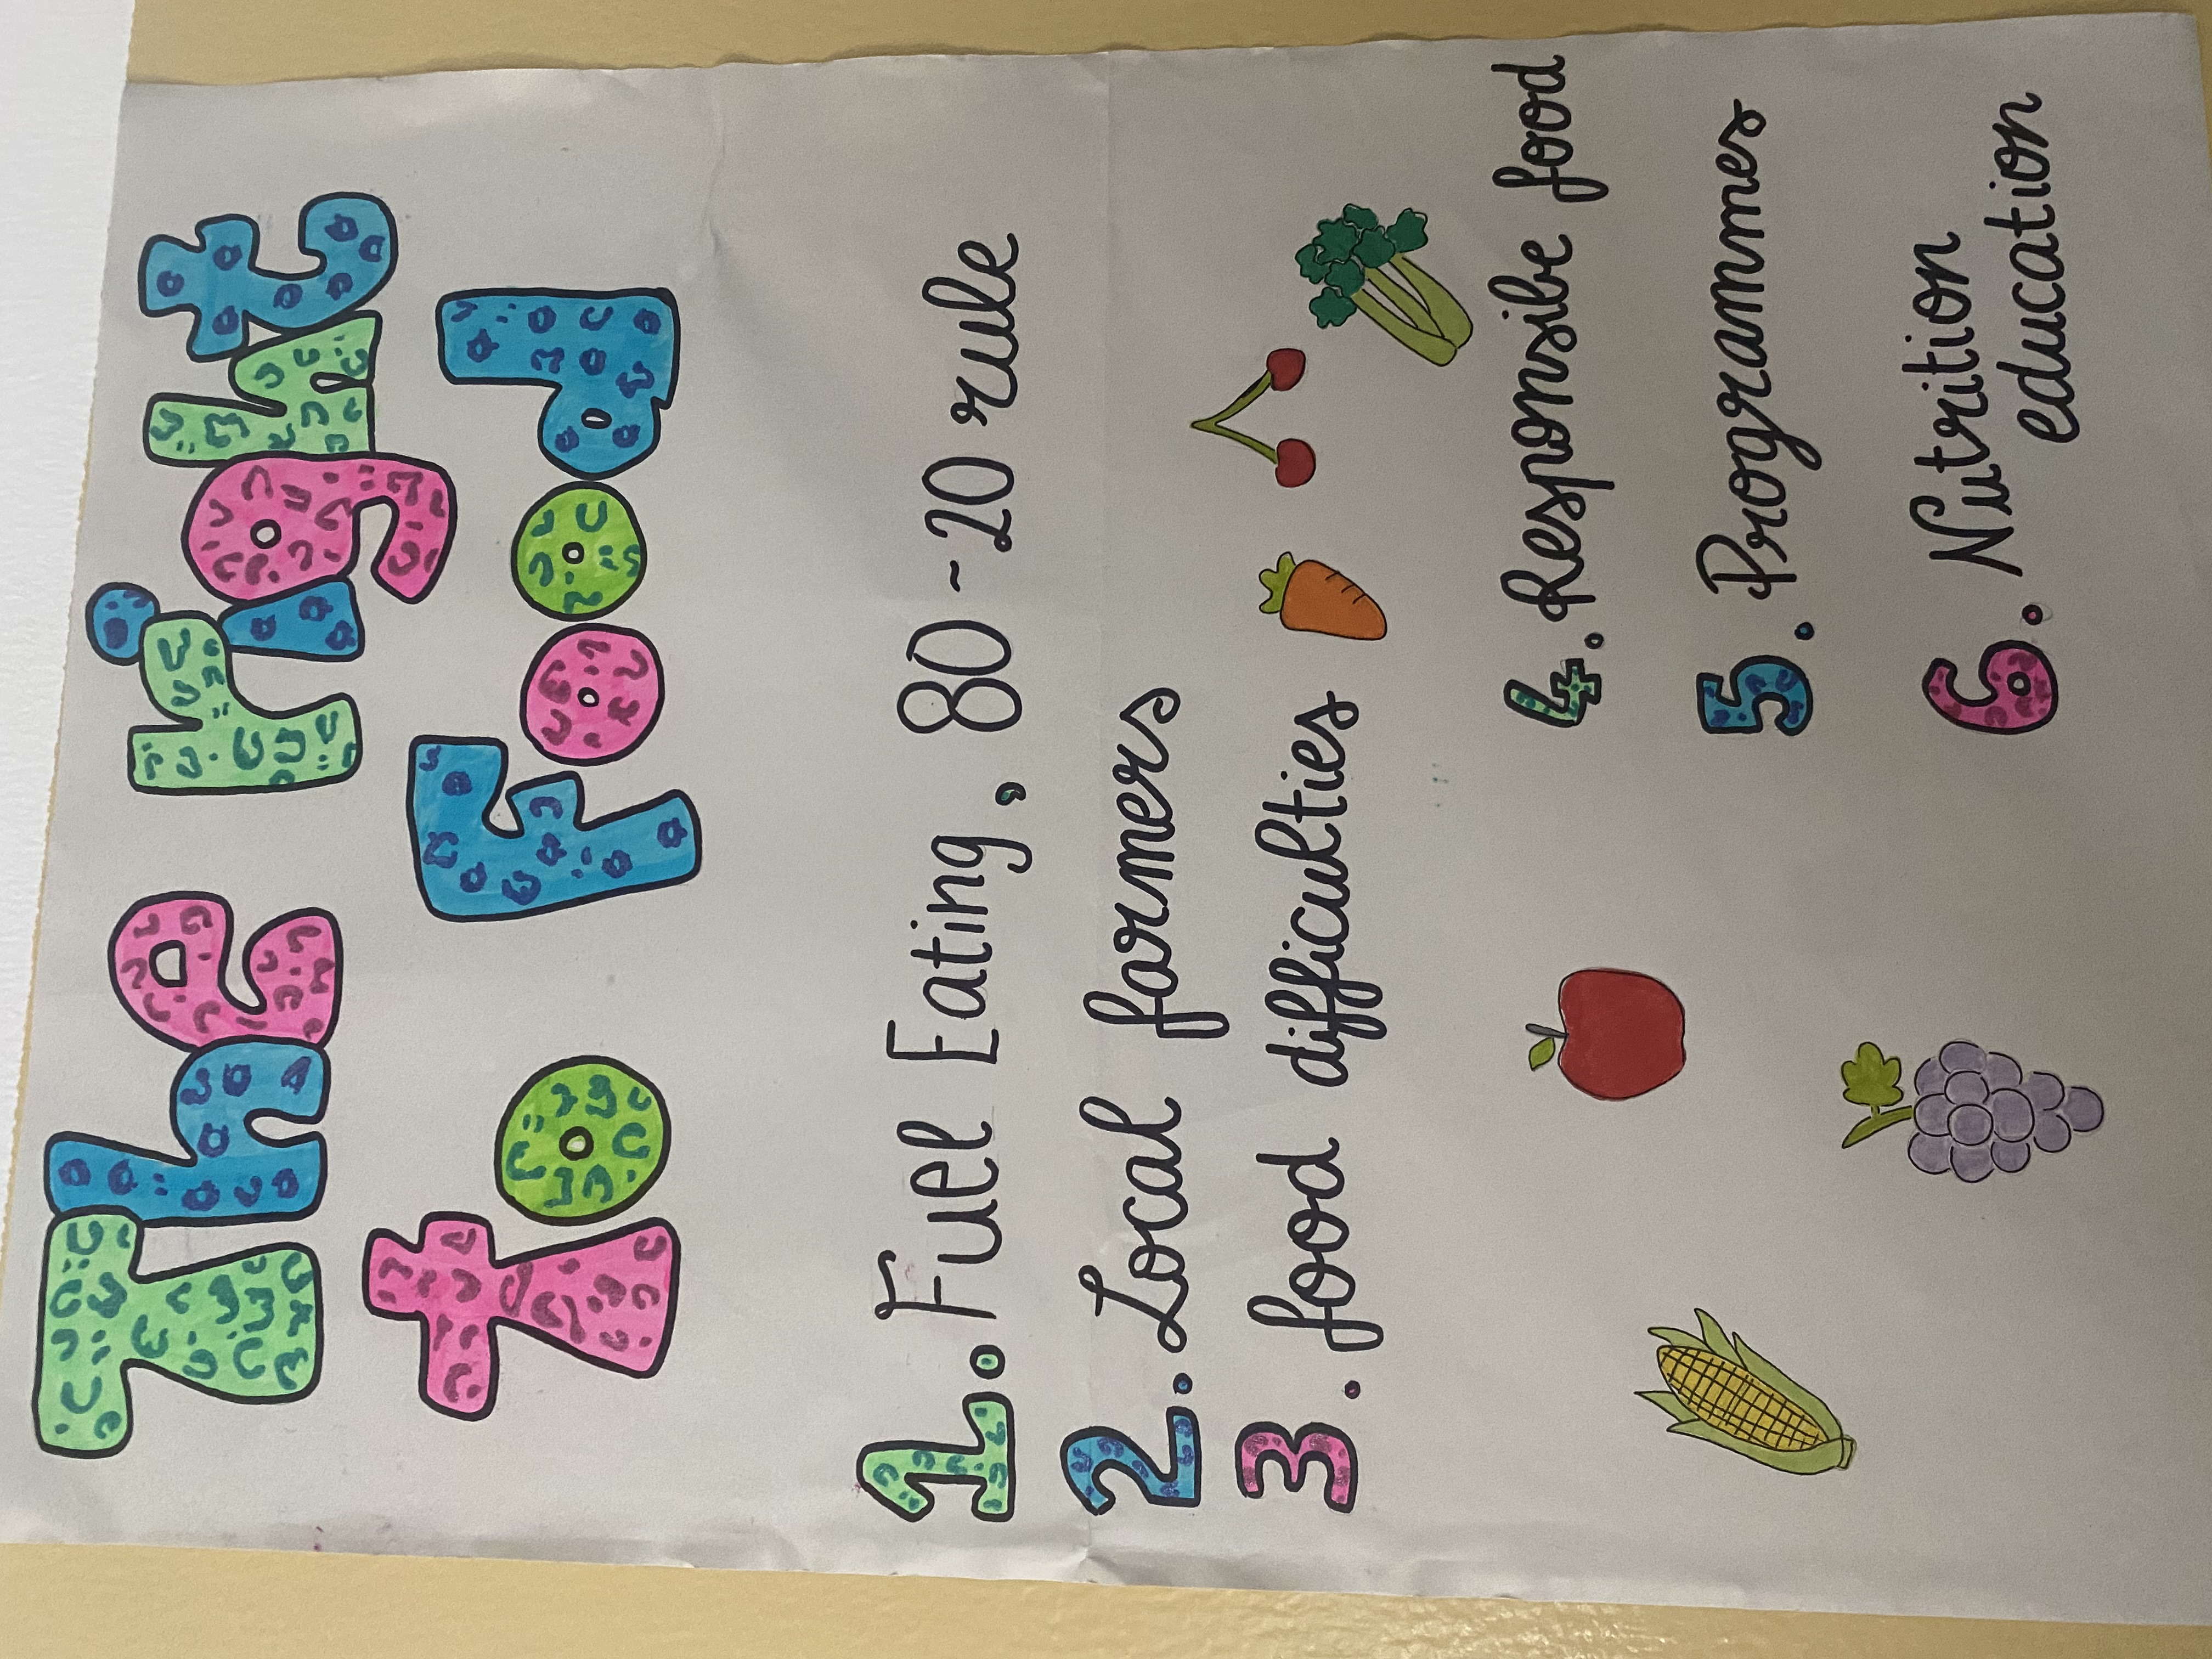 The right
to Food
1. Fuel Eating, 80-20 rule
2. Local farmers
3. food difficulties
4. Responsibe food
5. Programmes
6. Nutrition
education